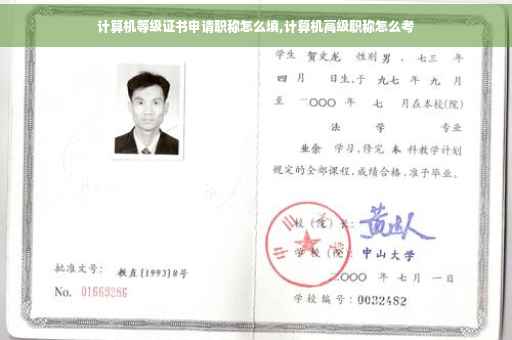 计算机等级证书申请职称怎么填,计算机高级职称怎么考
学生 贺文龙 性别 男 、七三 年
四 月 日生,于 九七 年 九 月
至 二〇〇〇 年 七 月在本校(院)
法 学 专业
业余 学习,修完 本 科教学计划
规定的全部课程,成绩合格,准予毕业。
校(院)长:
学校(院): 中山大学
二〇〇〇 年 七 月 一 日
学校编号: 0032482
批准文号: 教直[1993]8号
No. 01669286